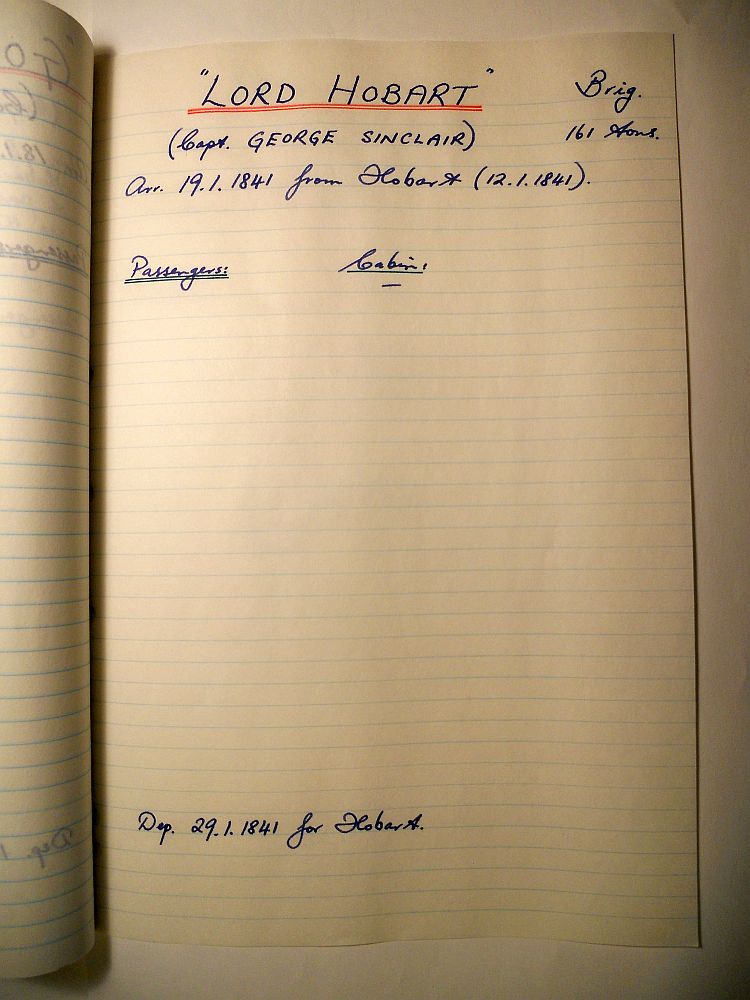 "LORD HOBART" Brig.
(Capt. GEORGE SINCLAIR) 161 tons.
Arr. 19.1.1841 from Hobart (12.1.1841).
Passengers: Cabin:
—
Dep. 29.1.1841 for Hobart.